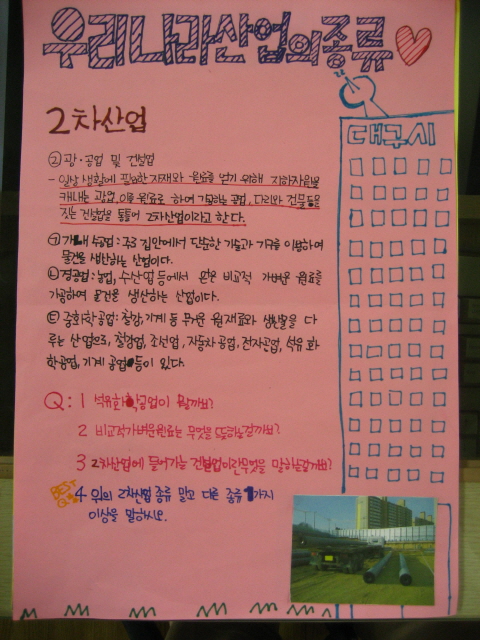 우리나라산업의종류
대구시
2차산업
② 광·공업 및 건설업
- 일상 생활에 필요한 자재와 원료를 얻기 위해 지하자원을
캐내는 광업, 이를 원료로 하여 가공하는 공업, 다리와 건물등을
짓는 건설업을 통틀어 2차산업이라고 한다.
㉠ 가내 수공업 : 주로 집안에서 단순한 기술과 기구를 이용하여
물건을 생산하는 산업이다.
㉡ 경공업 : 농업, 수산업 등에서 얻은 비교적 가벼운 원료를
가공하여 물건을 생산하는 산업이다.
㉢ 중화학 공업 : 철강, 기계 등 무거운 원재료와 생산물을 다
루는 산업으로, 철강업, 조선업, 자동차 공업, 전자산업, 석유 화
학공업, 기계 공업 등이 있다.
Q : 1 석유화학공업이 뭘까요?
2 비교적가벼운원료는 무엇을 뜻하는걸까요?
3 2차산업에 들어가는 건설업이란무엇을 말하는걸까요?
BEST Q 4 위의 2차산업 종류 말고 다른 종류 1가지
이상을 말하시오.